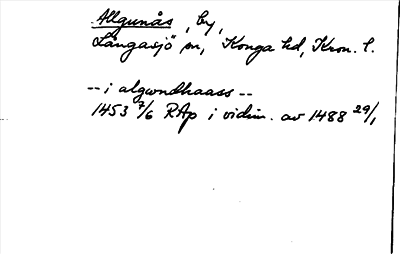 Allgunås, by,
Långasjö sn, Konga hd, Kron. l.
-- i algwndhaass --
1453 7/6 RAp i vidim. av 1488 29/1